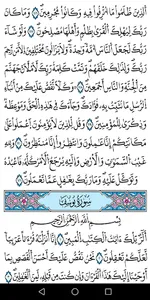 ٱلَّذِينَ ظَلَمُوا۟ مَآ أُتْرِفُوا۟ فِيهِ وَكَانُوا۟ مُجْرِمِينَ ١١٦ وَمَا كَانَ
رَبُّكَ لِيُهْلِكَ ٱلْقُرَىٰ بِظُلْمٍ وَأَهْلُهَا مُصْلِحُونَ ١١٧ وَلَوْ شَآءَ
رَبُّكَ لَجَعَلَ ٱلنَّاسَ أُمَّةً وَٰحِدَةً وَلَا يَزَالُونَ مُخْتَلِفِينَ ١١٨ إِلَّا مَن رَّحِمَ
رَبُّكَ وَلِذَٰلِكَ خَلَقَهُمْ وَتَمَّتْ كَلِمَةُ رَبِّكَ لَأَمْلَأَنَّ جَهَنَّمَ
مِنَ ٱلْجِنَّةِ وَٱلنَّاسِ أَجْمَعِينَ ١١٩ وَكُلًّا نَّقُصُّ عَلَيْكَ مِنْ
أَنۢبَآءِ ٱلرُّسُلِ مَا نُثَبِّتُ بِهِۦ فُؤَادَكَ وَجَآءَكَ فِى هَٰذِهِ ٱلْحَقُّ وَمَوْعِظَةٌ
وَذِكْرَىٰ لِلْمُؤْمِنِينَ ١٢٠ وَقُل لِّلَّذِينَ لَا يُؤْمِنُونَ ٱعْمَلُوا۟ عَلَىٰ
مَكَانَتِكُمْ إِنَّا عَٰمِلُونَ ١٢١ وَٱنتَظِرُوٓا۟ إِنَّا مُنتَظِرُونَ ١٢٢ وَلِلَّهِ
غَيْبُ ٱلسَّمَٰوَٰتِ وَٱلْأَرْضِ وَإِلَيْهِ يُرْجَعُ ٱلْأَمْرُ كُلُّهُۥ فَٱعْبُدْهُ
وَتَوَكَّلْ عَلَيْهِ وَمَا رَبُّكَ بِغَٰفِلٍ عَمَّا تَعْمَلُونَ ١٢٣
سُورَةُ يُوسُفَ
بِسْمِ ٱللَّهِ ٱلرَّحْمَٰنِ ٱلرَّحِيمِ
الٓر تِلْكَ ءَايَٰتُ ٱلْكِتَٰبِ ٱلْمُبِينِ ١ إِنَّآ أَنزَلْنَٰهُ قُرْءَٰنًا عَرَبِيًّا
لَّعَلَّكُمْ تَعْقِلُونَ ٢ نَحْنُ نَقُصُّ عَلَيْكَ أَحْسَنَ ٱلْقَصَصِ بِمَآ
أَوْحَيْنَآ إِلَيْكَ هَٰذَا ٱلْقُرْءَانَ وَإِن كُنتَ مِن قَبْلِهِۦ لَمِنَ ٱلْغَٰفِلِينَ ٣